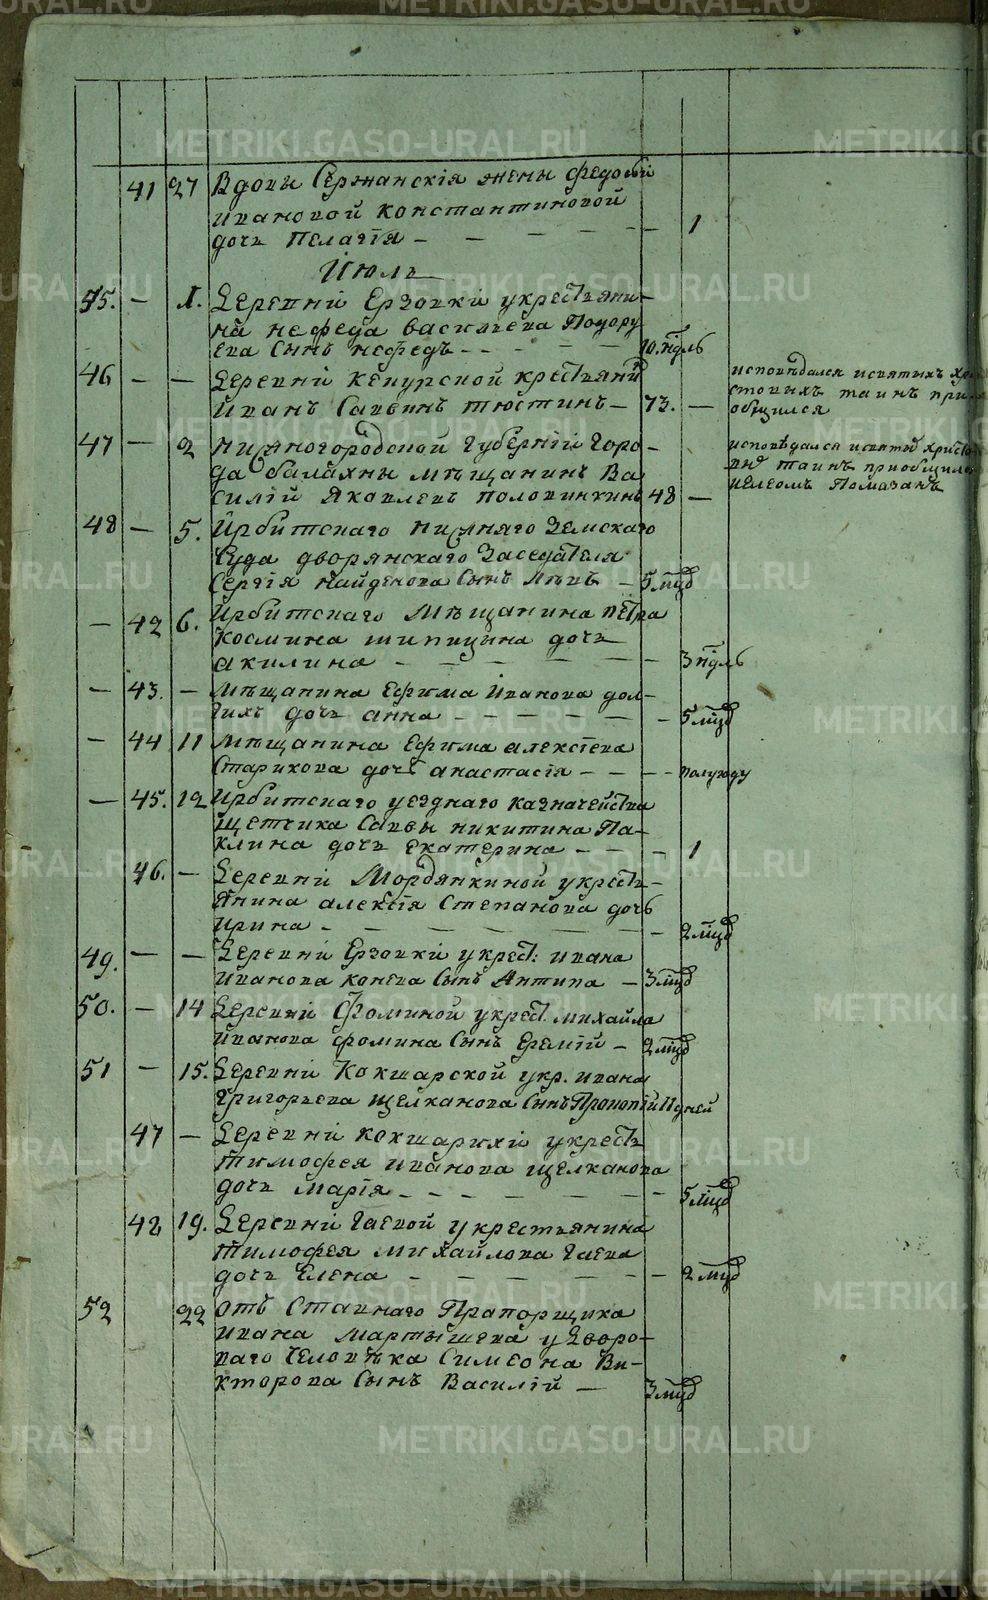 41 27 Вдовы Сержанскія жены Федосьи
Ивановой Константиновой
дочь Пелагія - - - - - 1
Июль
45. - 1. Деревни Ерзовки у крестьяни-
на Нефеда Васильева
сынъ Нефедъ - - - - 10. нѣдль
46 - - Деревни Кекурской крестьянинъ
Иванъ Саввинъ Тюстинъ - 73. -
исповѣдался и святыхъ Хри
стовыхъ таинъ при
общился
47 - 2 Нижногородской Губерніи горо-
да Балахны мѣщанинъ Ва
силій Яковлевъ Половинкинъ 48 -
исповѣдался и святых Христо
вых таинъ приобщилъ
и елеомъ помазанъ
48 - 5. Ирбитскаго нижняго Земскаго
Суда дворянскаго Заседателя
Сергія Найденова сынъ Левъ - 5 мцд
- 42 6. Ирбитскаго мѣщанина Петра
Космина Шипицына дочь
Акилина - - - - - 3 нѣдль
- 43. - Мѣщанина Ефима Иванова Дол-
гихъ дочь Анна - - - - - 5 мцд
- 44 11 Мѣщанина Ефима Алексіева
Старикова дочь Анастасія - - - - полугоду
- 45. 12 Ирбитскаго уезднаго казначейства
щетчика Саввы Никитина Па-
клина дочь Екатерина - - - - 1
46. - Деревни Мордянкиной у кресть-
янина Алексія Степанова дочь
Ирина - - - - - 2 мцд
49. - - Деревни Ерзовки у крест: Ивана
Иванова Конева сынъ Антипа - 3 мцд
50. - 14 Деревни Фоминой у крест. Михайла
Иванова Фомина сынъ Еремій - 2 мцд
51 - 15. Деревни Кокшарской у кр. Ивана
Григорьева Щелканова сынъ Прокопій 11 дней
47 - Деревни Кокшарихи у кресть
Тимофея Иванова Щелканова
дочь Марія - - - - - 5 мцд
42 19. Деревни Гаевой у крестьянина
Тимофея Михайлова Гаева
дочь Елена - - - - - 2 мцд
52 22 Отъ Ставнаго Прапорщика
Ивана Мартышева у дворо-
ваго человѣка Симеона Ви-
кторова сынъ Василій - 3 мцд
METRIKI.GASO-URAL.RU